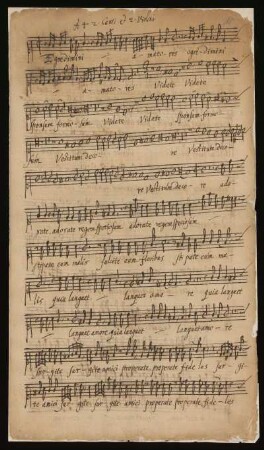 A 4. 2 Canti è 2 Violini
Egredimini a - mato - res egredimini
a - mato - res Videte Videte
sponsum formo - sum Videte Videte sponsum formo -
sum Vestitum deco - re Vestitum deco -
re Vestitum deco - re ado -
rate adorate regem speciosum adorate regem speciosum
stipate eum malis fulcite eum floribus stipate eum ma -
lis quia languet languet amo - re quia languet
languet amore quia languet languet amo - re
surgite surgite amici properate, properate fide - les sur - gi -
te amici surgite surgite amici properate properate fide - les